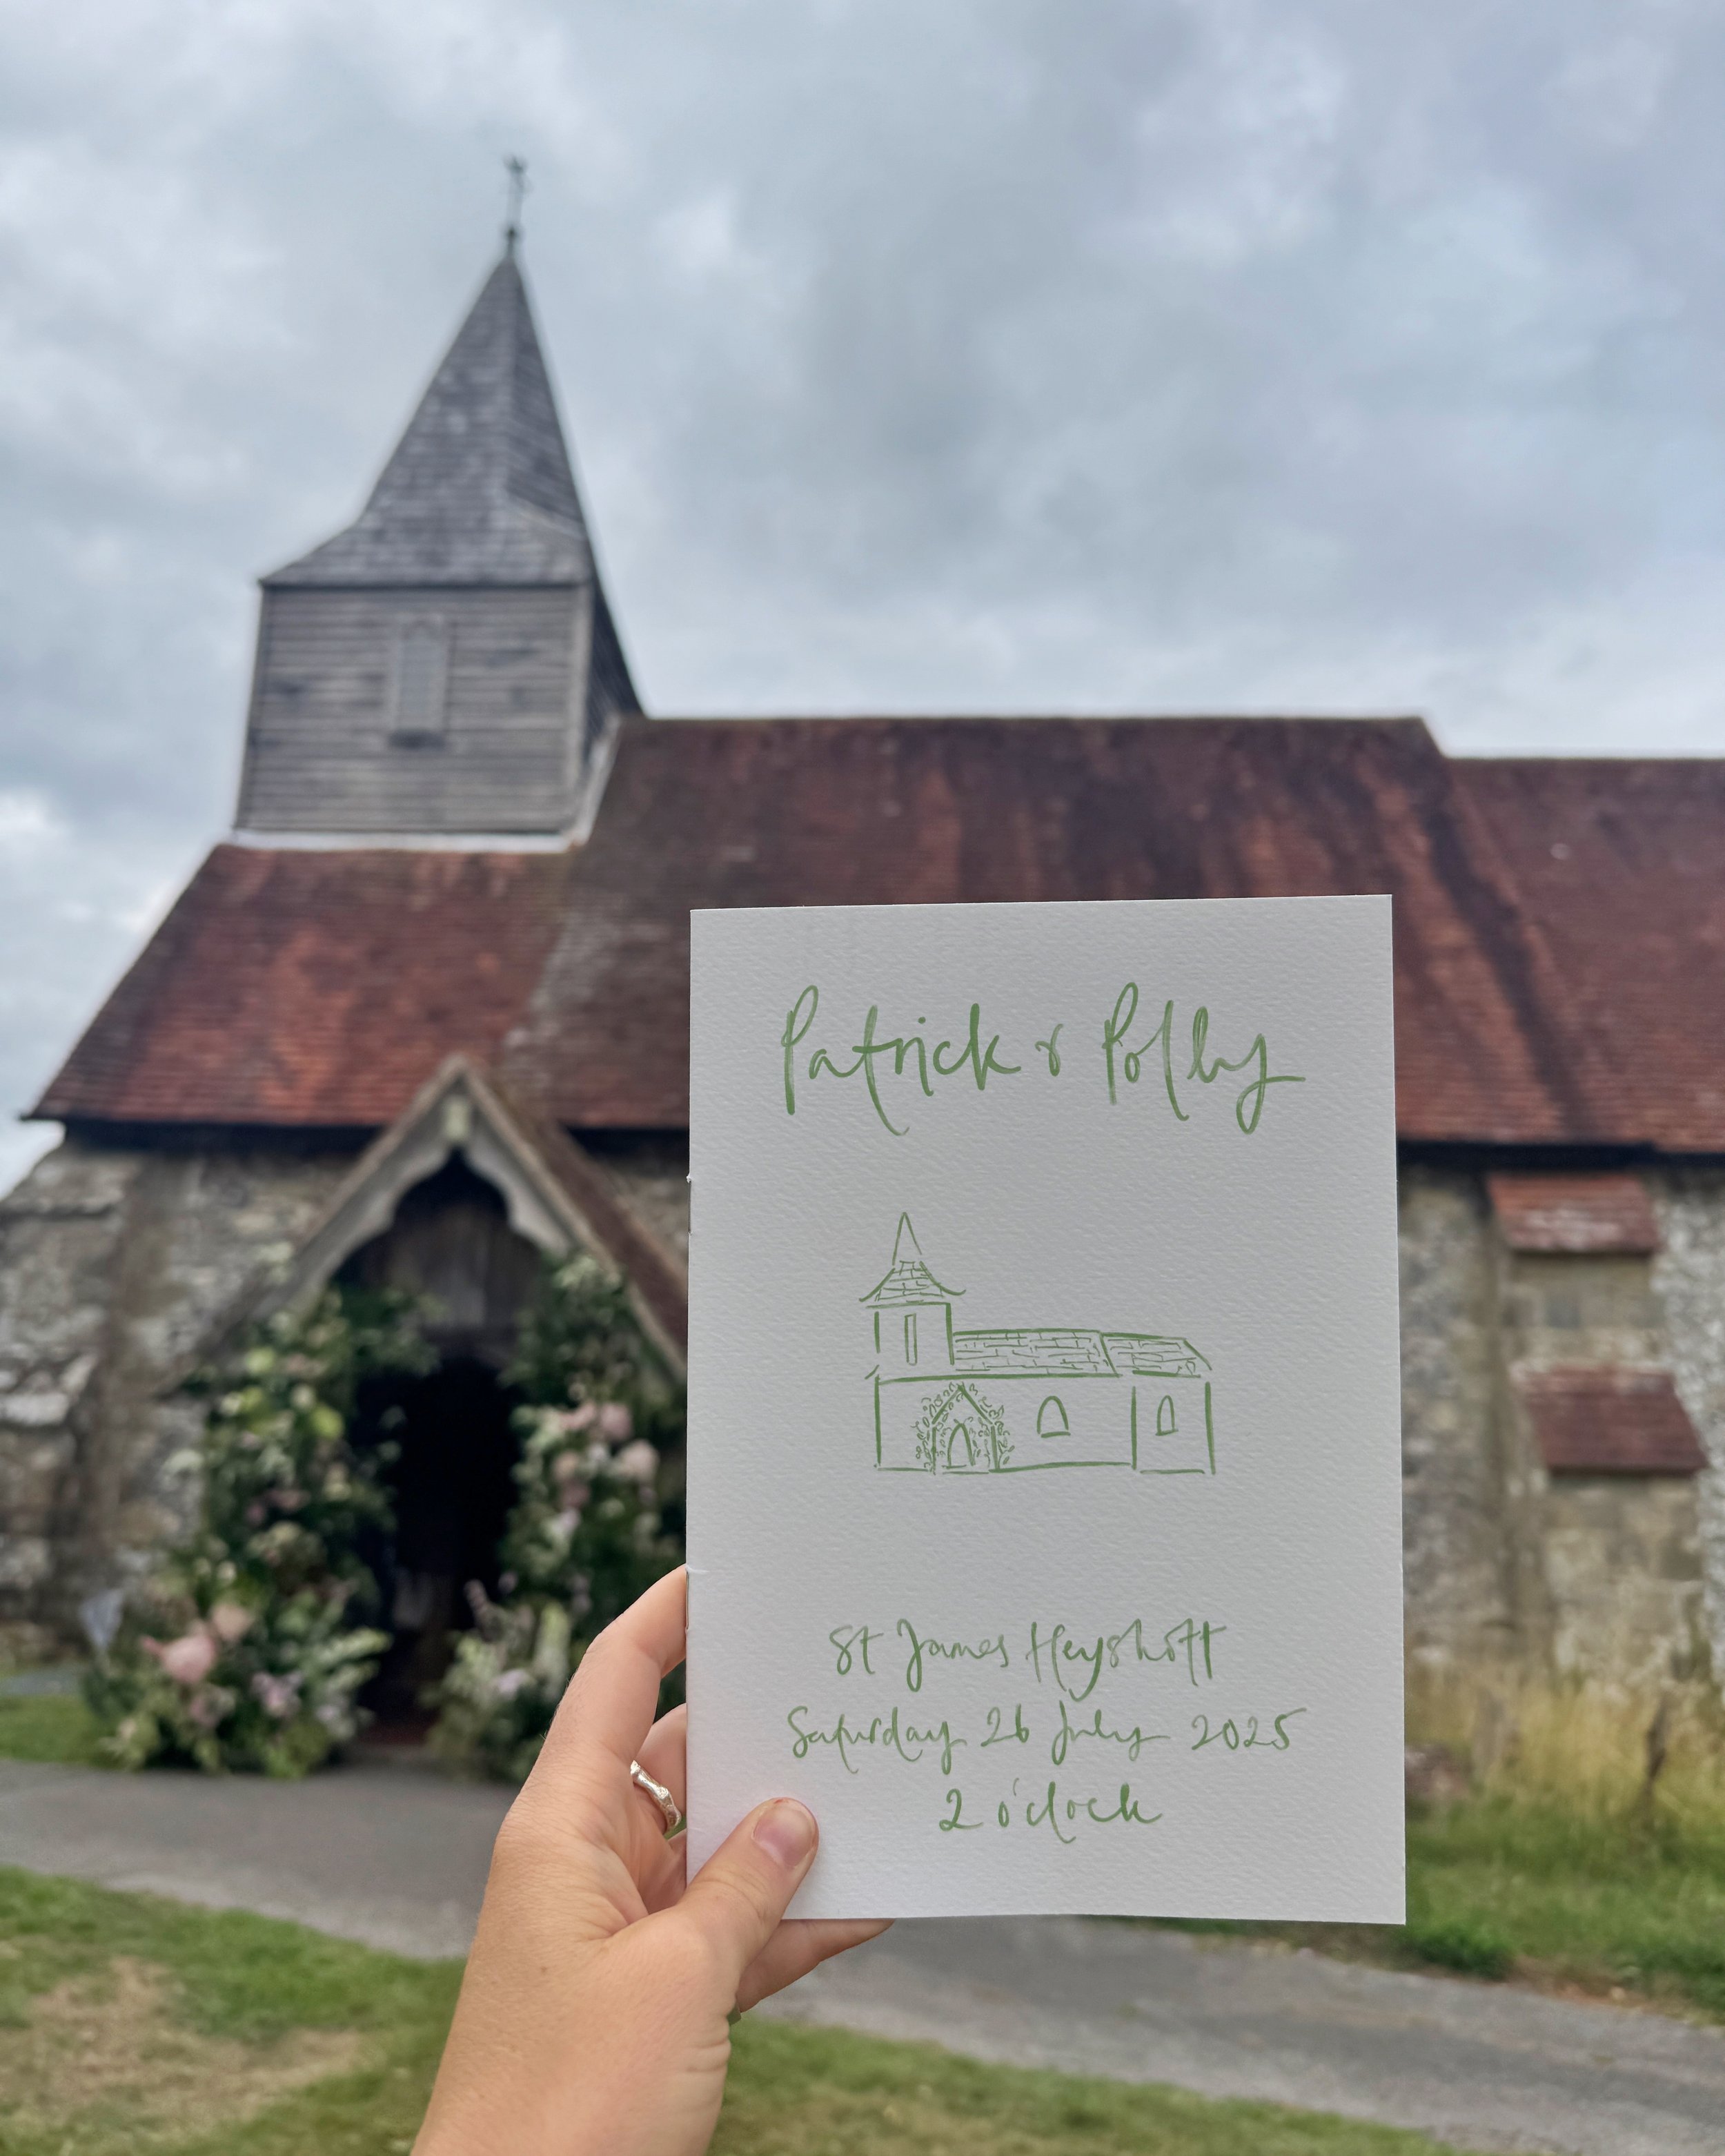 Patrick & Polly
St James Heyshott
Saturday 26 July 2025
2 o'clock